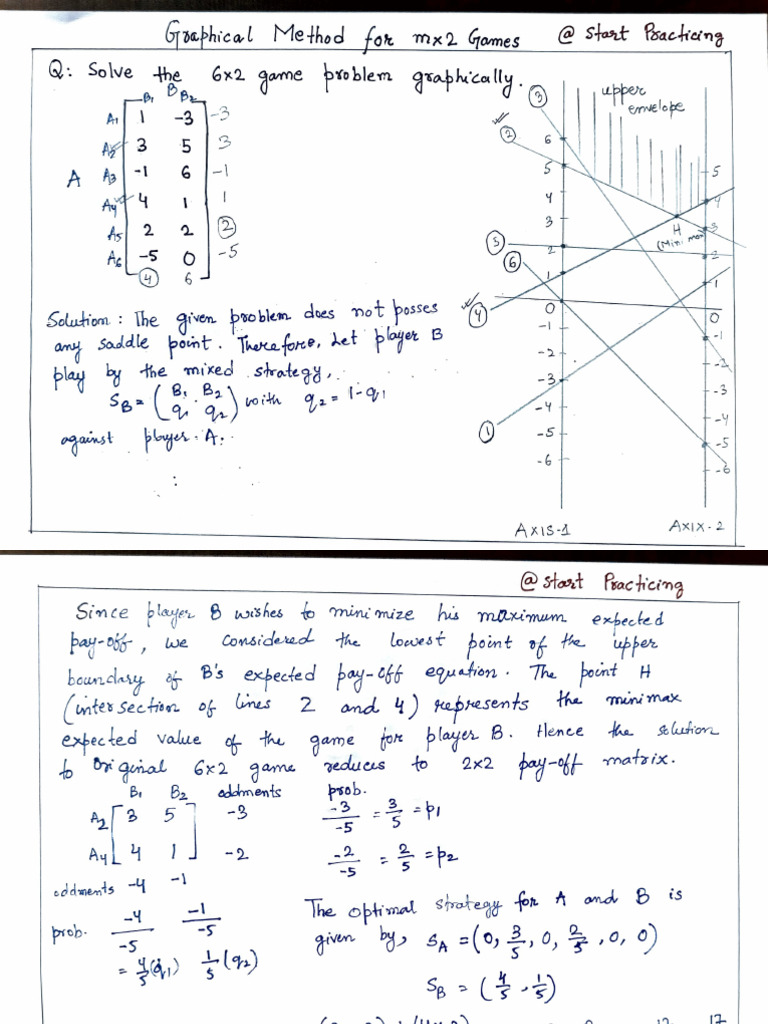 Graphical Method for m×2 Games @ Start Practicing
Q: Solve the 6×2 game problem graphically.
B
B1 B2
A1 1 -3 -3
A2 3 5 3
A A3 -1 6 -1
A4 4 1 1
A5 2 2 2
A6 -5 0 -5
4 6
Solution: The given problem does not posses
any saddle point. Therefore, Let player B
play by the mixed strategy,
SB = (B1 B2
q1 q2) with q2 = 1-q1
against player A.
:
upper
envelope
3
2
5
6
4
1
6
5
4
3
2
1
0
-1
-2
-3
-4
-5
-6
5
4
3
2
1
0
-1
-2
-3
-4
-5
-6
H
(Mini max)
AXIS-1 AXIX-2
@ Start Practicing
Since player B wishes to minimize his maximum expected
pay-off, we considered the lowest point of the upper
boundary of B's expected pay-off equation. The point H
(intersection of lines 2 and 4) represents the minimax
expected value of the game for player B. Hence the solution
to original 6×2 game reduces to 2×2 pay-off matrix.
B1 B2 oddments prob.
A2 3 5 -3 -3/-5 = 3/5 = p1
A4 4 1 -2 -2/-5 = 2/5 = p2
oddments -4 -1
prob. -4/-5 -1/-5
= 4/5 (q1) 1/5 (q2)
The optimal strategy for A and B is
given by, SA = (0, 3/5, 0, 2/5, 0, 0)
SB = (4/5, 1/5)